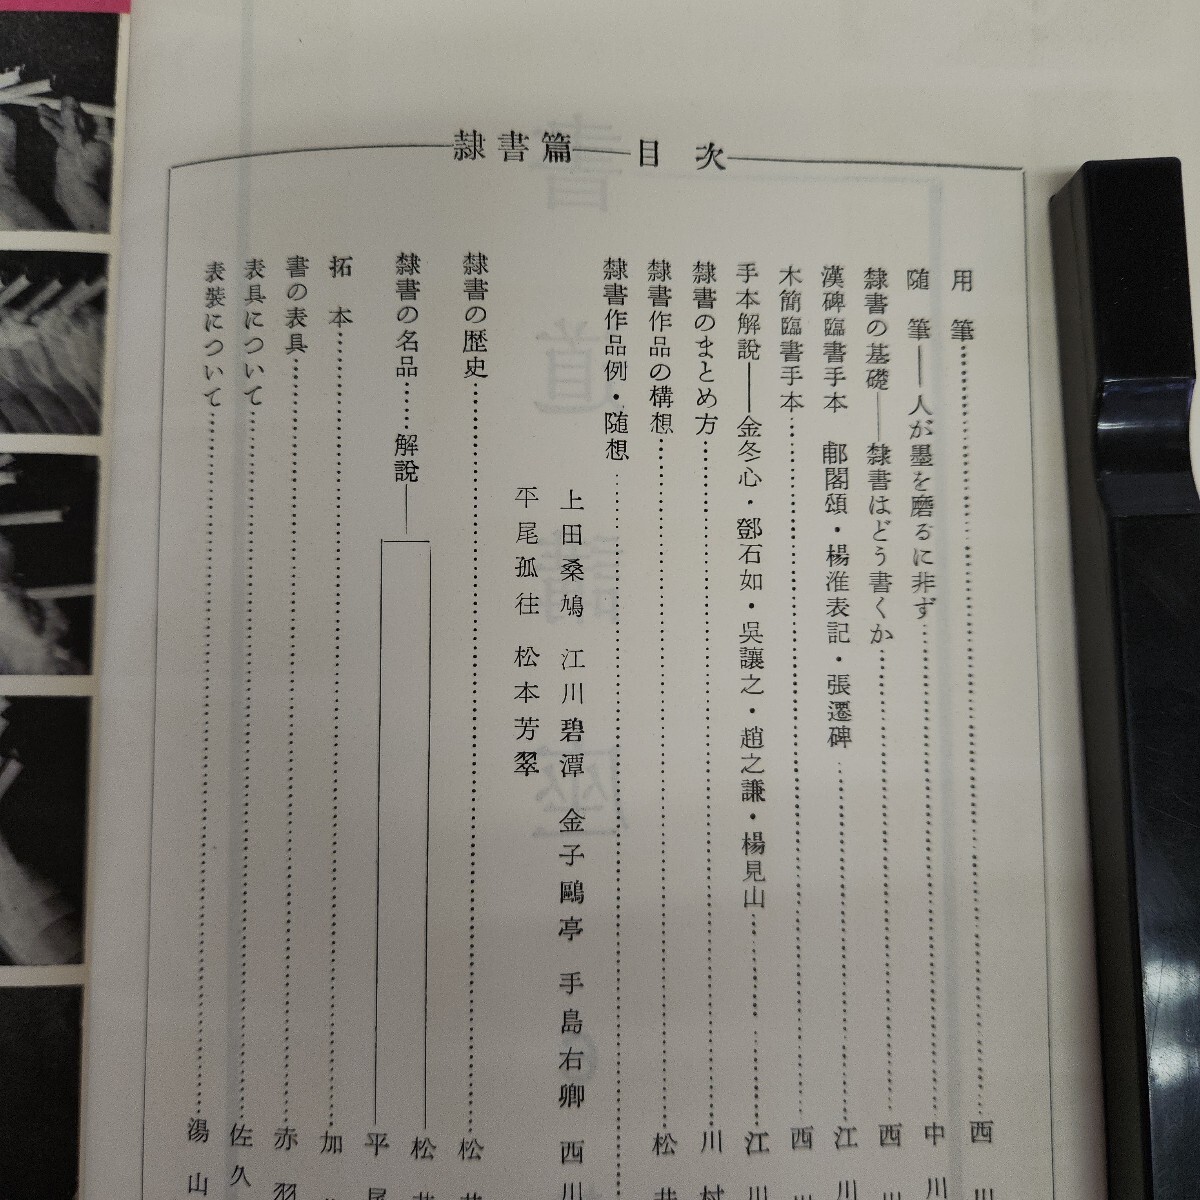 隷書篇――目次
用筆……西川
随筆――人が墨を磨るに非ず……中川
隷書の基礎――隷書はどう書くか……西川
漢碑臨書手本　郙閣頌・楊淮表記・張遷碑……江川
木簡臨書手本……西川
手本解説――金冬心・鄧石如・吳讓之・趙之謙・楊見山……江川
隷書のまとめ方……川村
隷書作品の構想……松井
隷書作品例・随想……
上田桑鳩　江川碧潭　金子鷗亭　手島右卿　西川
平尾孤往　松本芳翠
隷書の歴史……松井
隷書の名品……解説――
松井
平尾
拓本……加
書の表具……赤羽
表具について……佐久
表装について……湯山
書道講座